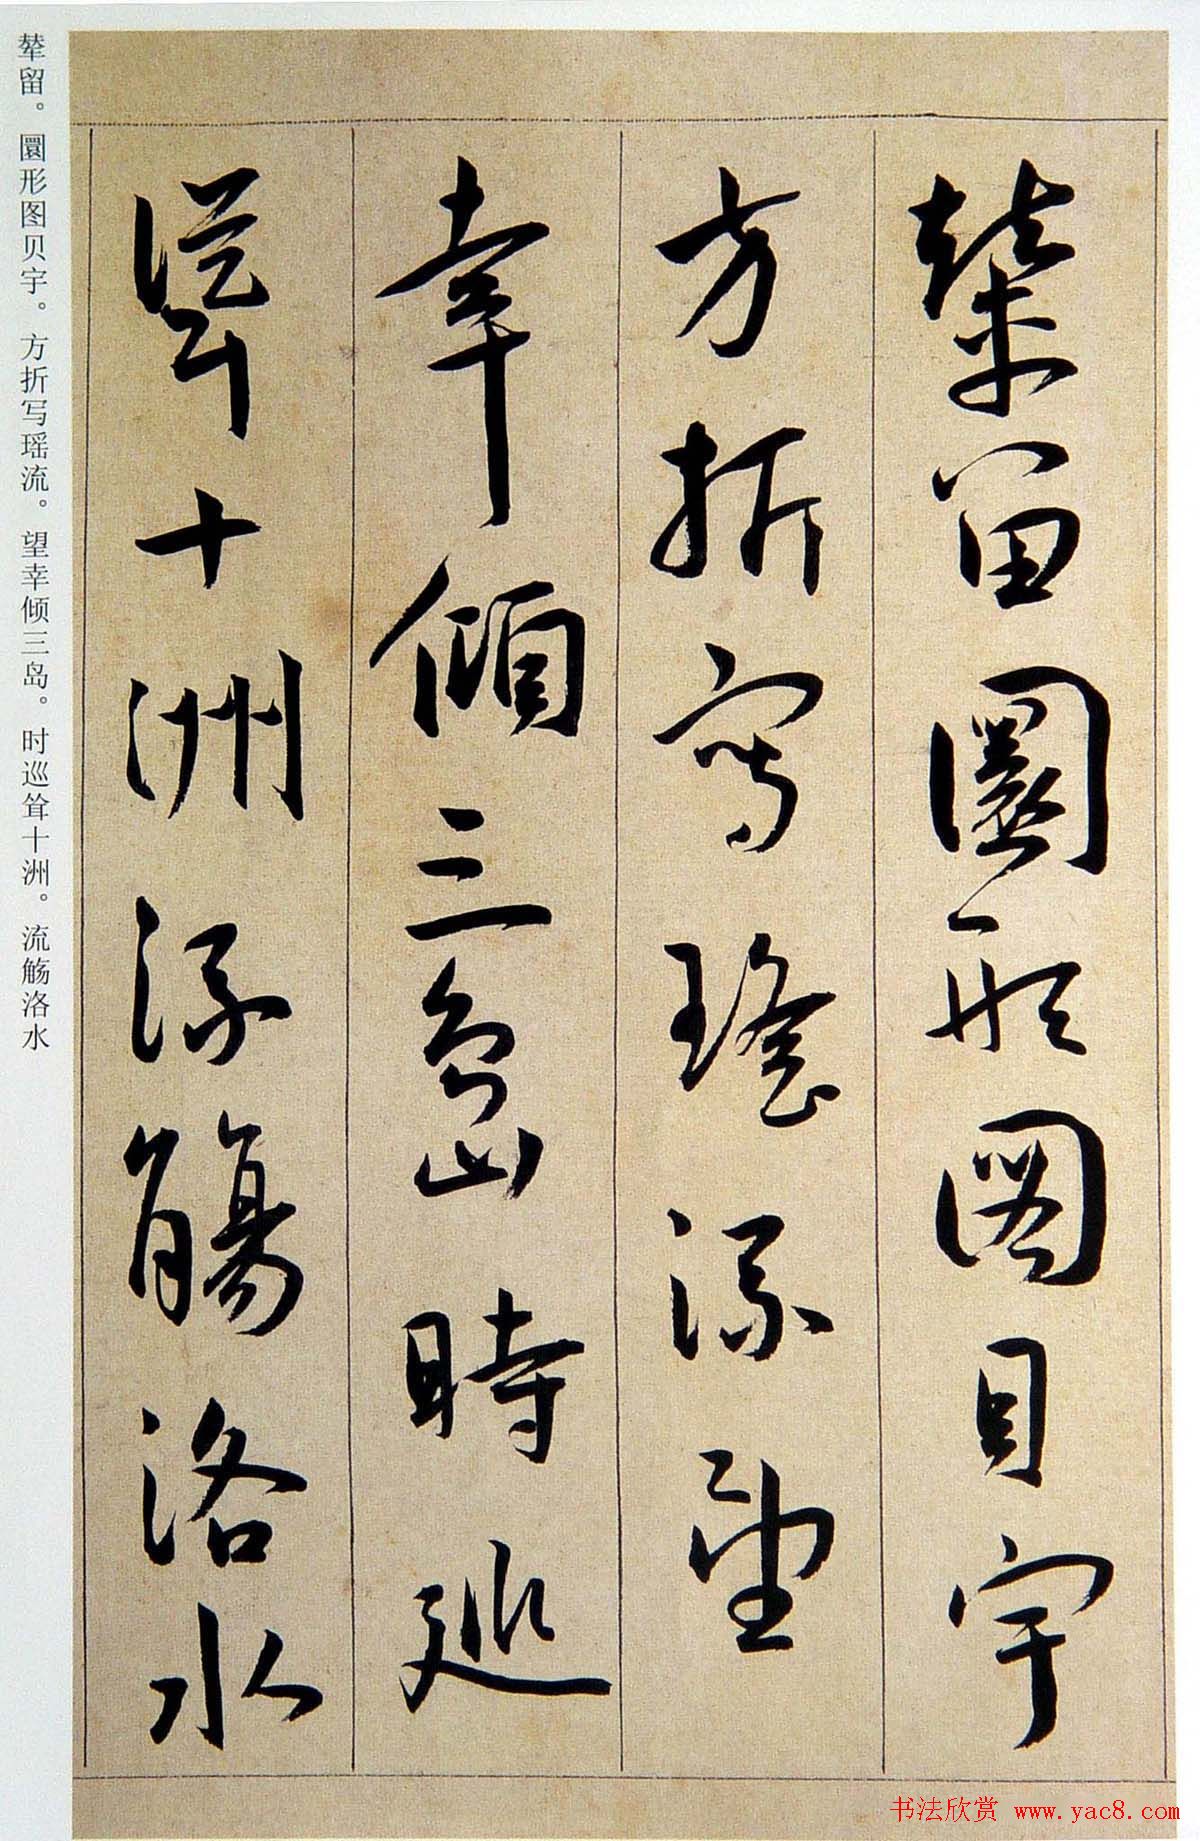 輦留圜形圖貝宇
方折寫瑤流望
幸傾三島時巡
聳十洲流觴洛水
辇留。圜形图贝宇。方折写瑶流。望幸倾三岛。时巡耸十洲。流觞洛水
书法欣赏 www.yac8.com